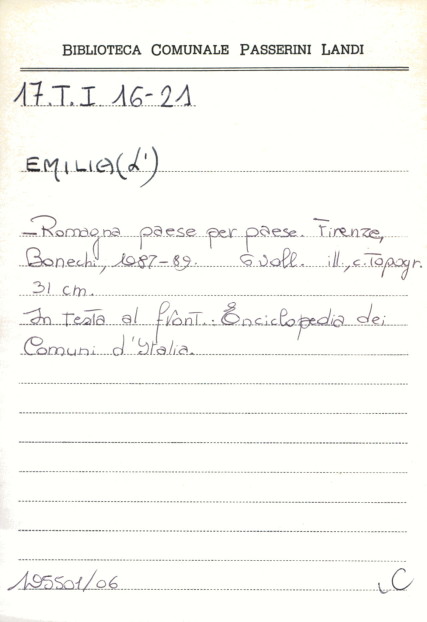 BIBLIOTECA COMUNALE PASSERINI LANDI
17.T.I 16-21
EMILIA (L')
-Romagna paese per paese. Firenze,
Bonechi, 1987-89. 6 voll. ill., c. Topogr.
31 cm.
In testa al front.: Enciclopedia dei
Comuni d'Italia.
195501/06